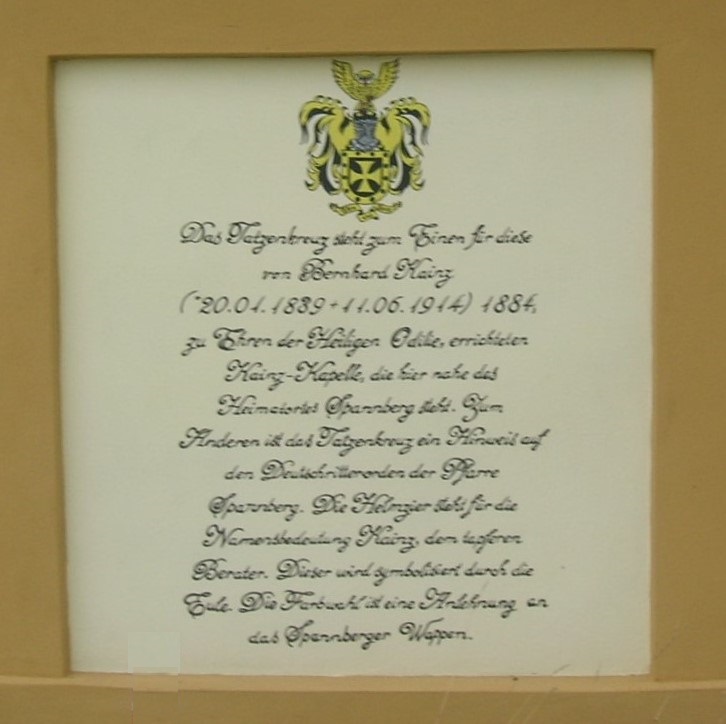 Das Tatzenkreuz steht zum Einen für diese
von Bernhard Kainz
(*20.01.1839 +11.06.1914) 1884,
zu Ehren der Heiligen Odilie, errichteten
Kainz-Kapelle, die hier nahe des
Heimatortes Spannberg steht. Zum
Anderen ist das Tatzenkreuz ein Hinweis auf
den Deutschritterorden der Pfarre
Spannberg. Die Helmzier steht für die
Namensbedeutung Kainz, dem tapferen
Berater. Dieser wird symbolisiert durch die
Eule. Die Farbwahl ist eine Anlehnung an
das Spannberger Wappen.